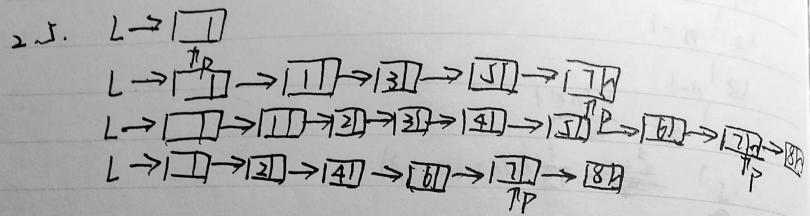 2.5. L→
↑P
L→ →1→3→5→7∧
↑P
L→ →1→2→3→4→5→6→7→8∧
↑P
L→ →2→4→6→7→8∧
↑P